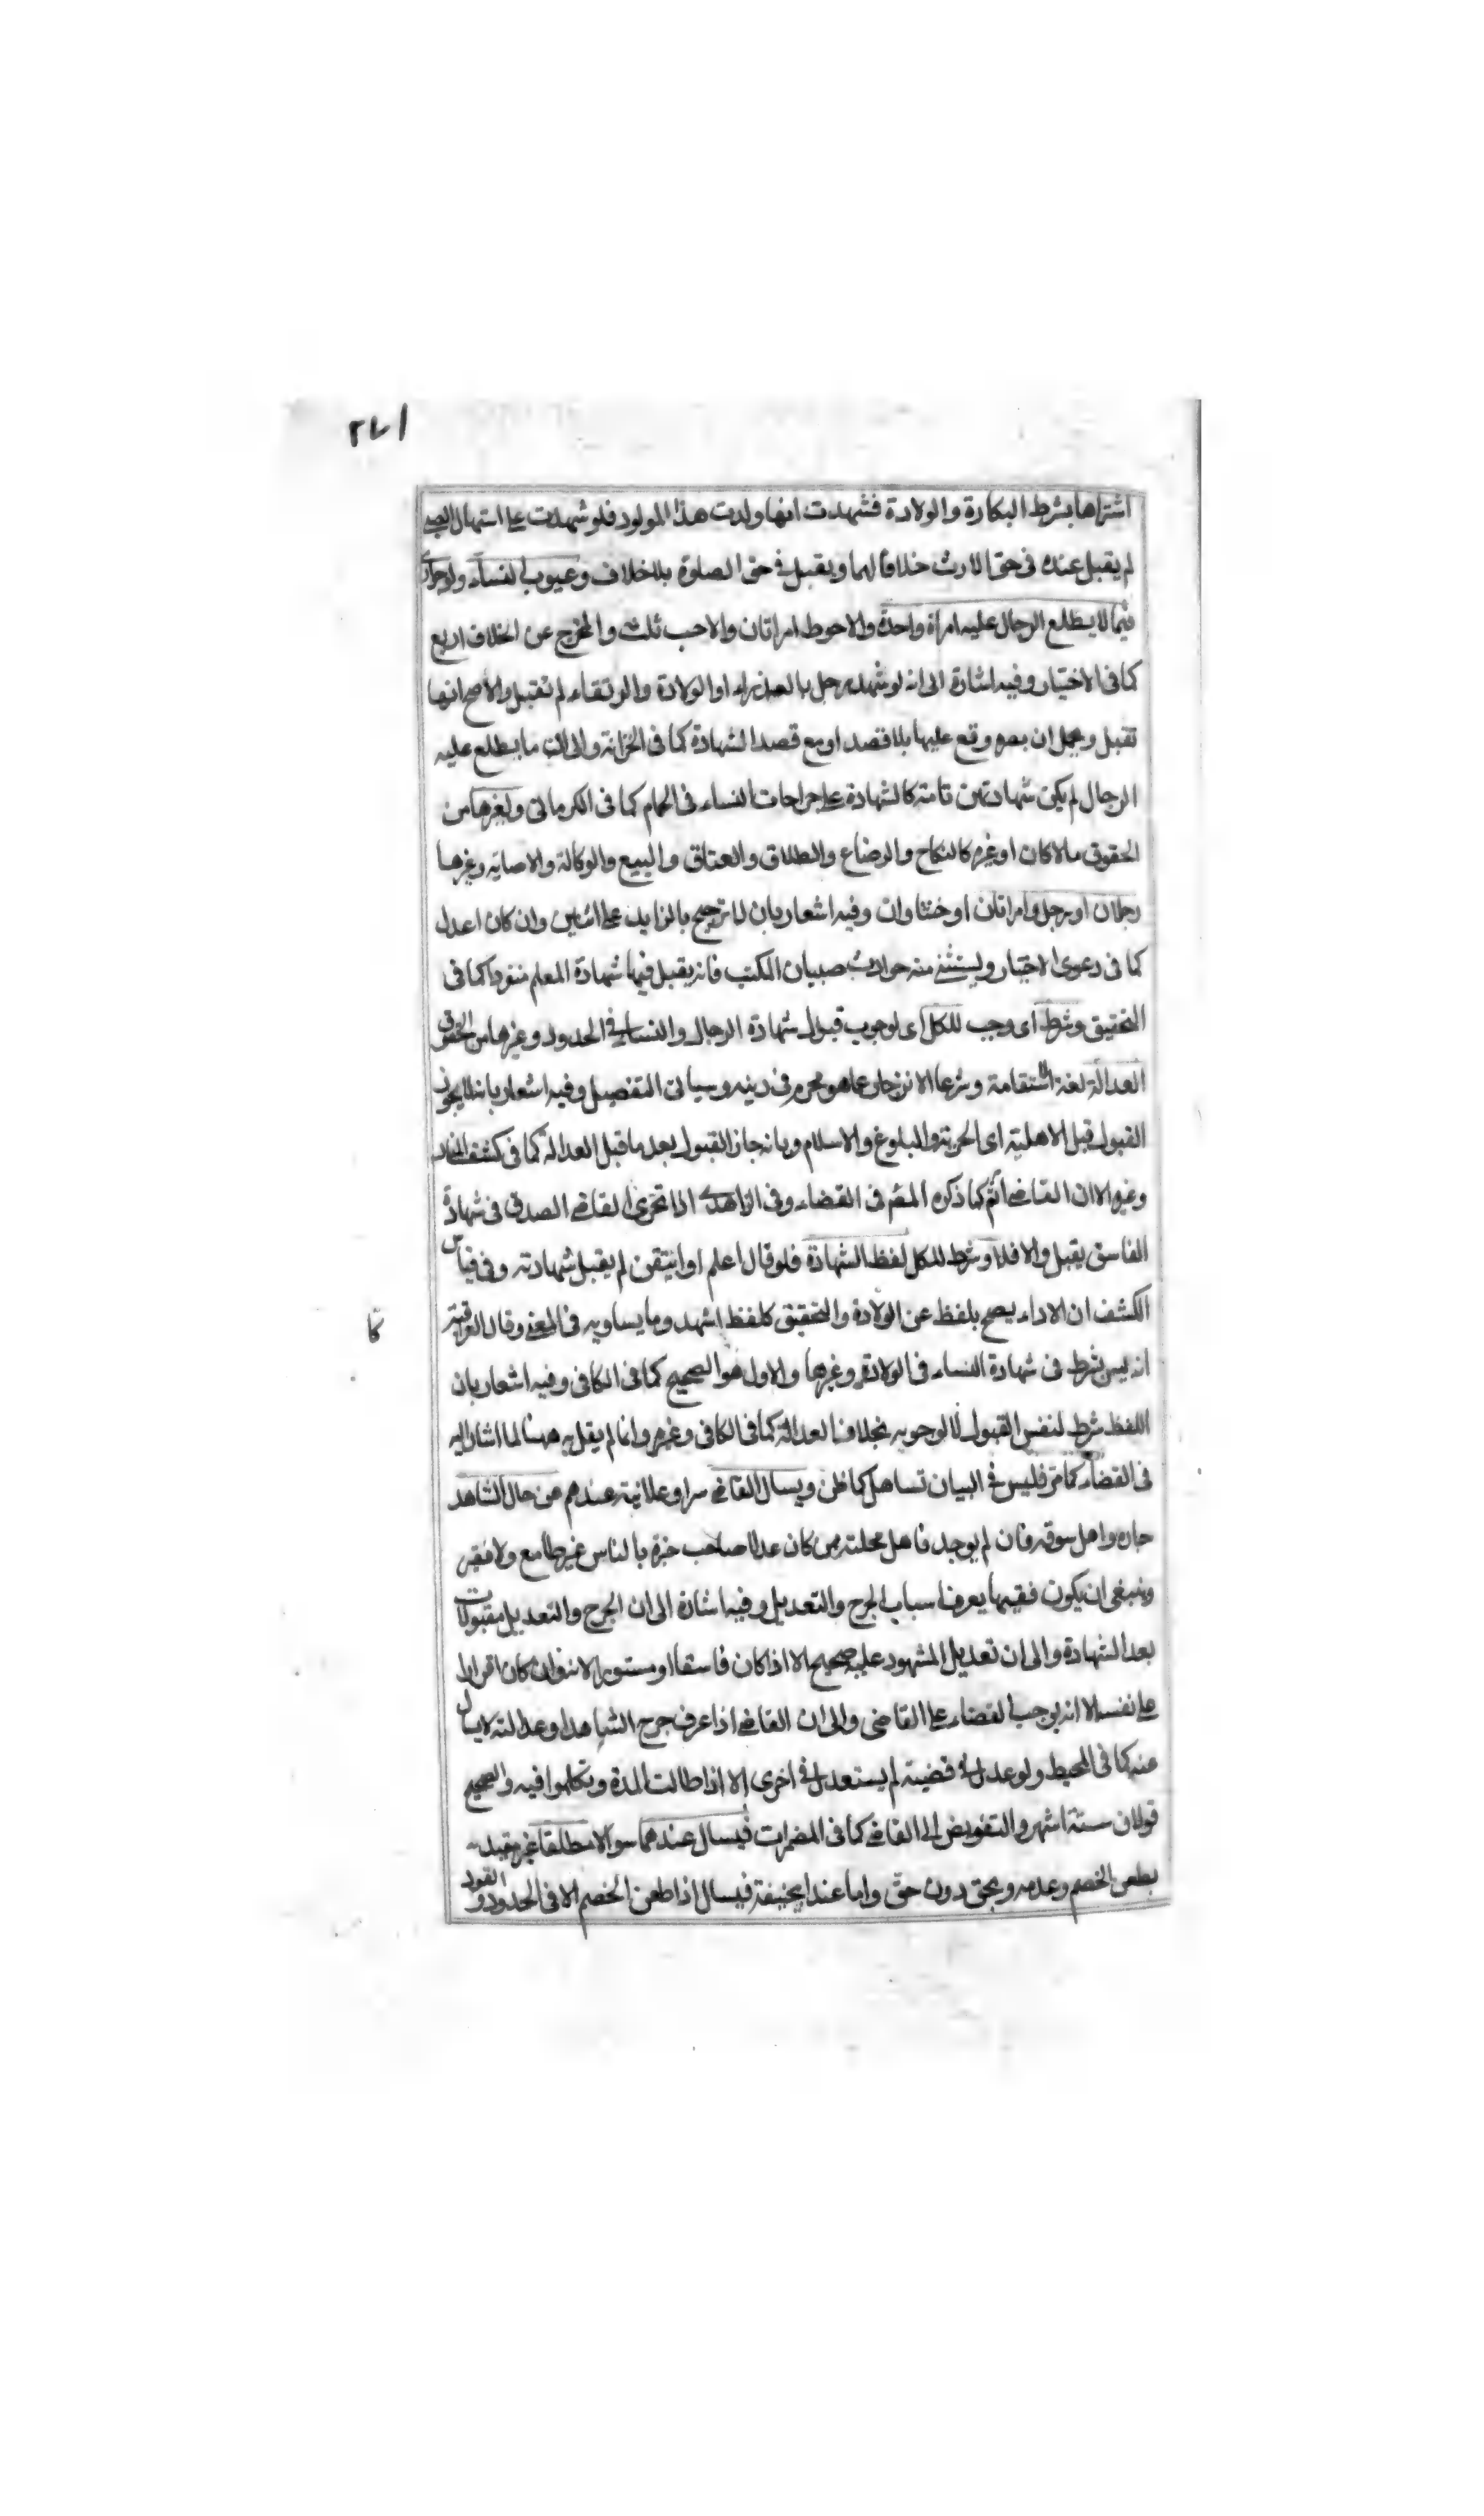 ٢٧١
اشتراها بشرط البكارة والولادة فشهدت انها ولدت هذا المولود فلو شهدت على استهلال الصبي
لم يقبل عنده فى حق الارث خلافا لهما ويقبل فى حق الصلوة بلا خلاف وعيوب النساء
فيما لا يطلع الرجال عليه امراة واحدة والاحوط امراتان والاحب ثلث والمخرج عن الخلاف اربع
كما فى الاختيار وفيه اشارة الى انه لو شهد رجل بالعذراء او الولادة والرتقاء لم تقبل والاصح انها
تقبل ويحمل ان بصره وقع عليها بلا قصد او مع قصد الشهادة كما فى الخزانة والى ان ما يطلع عليه
الرجال لم يكن شهادتهن تامة كالشهادة على جراحات النساء فى الحمام كما فى الكرمانى ولغيرها من
الحقوق مالا كان او غيره كالنكاح والرضاع والطلاق والعتاق والبيع والوكالة والاصاية وغيرها
رجلان او رجل وامراتان او خنثاوان وفيه اشعار بان لا ترجيح بالزايد على اثنين وان كان اعدل
كما فى دعوى الاختيار ويستثنى منه حوادث صبيان المكتب فانه يقبل فيها شهادة المعلم منفردا كما فى
التحقيق وشرط اى وجب للكل اى لوجوب قبول شهادة الرجال والنساء فى الحدود وغيرها من الحقوق
العدالة لغة الاستقامة وشرعا الانزجار عما هو محرم فى دينه وسياتى التفصيل وفيه اشعار بانه لا يجوز
القبول قبل الاهلية اى الحرية والبلوغ والاسلام وبانه جاز القبول بعد ما قبل العدالة كما فى كشف المنار
وغيره الا ان القاضى اثم كما ذكره المصنف فى القضاء وفى الزاهدى اذا تحرى القاضى الصدق فى شهادة
الفاسق يقبل والا فلا وشرط للكل لفظ الشهادة فلو قال اعلم او اتيقن لم يقبل شهادته وفى قياس
الكشف ان الاداء يصح بلفظ عن الولادة والتحقيق كلفظ اشهد وما يساويه فى المعنى وقال العراقية
انه ليس بشرط فى شهادة النساء فى الولادة وغيرها والاول هو الصحيح كما فى الكافى وفيه اشعار بان
اللفظ شرط لنفس القبول لا لوجوبه بخلاف العدالة كما فى الكافى وغيره وانما لم يقل به ههنا لما اشار اليه
فى القضاء كما مر فليس فى البيان تساهل كما ظن ويسال القاضى سرا وعلانية عندهم عن حال الشاهد
جاره واهل سوقه فان لم يوجد فاهل محلته ممن كان عدلا صاحب خبرة بالناس غير طامع ولا فقير
وينبغى ان يكون فقيها يعرف اسباب الجرح والتعديل وفيه اشارة الى ان الجرح والتعديل مقبولات
بعد الشهادة والى ان تعديل المشهود عليه صحيح الا اذا كان فاسقا او مستورا لانه وان كان اقرارا
على نفسه الا انه يوجب القضاء على القاضى والى ان القاضى اذا عرف جرح الشاهد او عدالته لا يسال
عنه كما فى المحيط ولو عدل فى قضية لم يستعدل فى اخرى الا اذا طالت المدة وتكلموا فيه والصحيح
قولان ستة اشهر والتفويض الى القاضى كما فى المضمرات فيسال عندهما سوالا مطلقا غير مقيد
بطعن الخصم وعدمه وبحق دون حق واما عند ابى حنيفة فيسال اذا طعن الخصم الا فى الحدود والقود